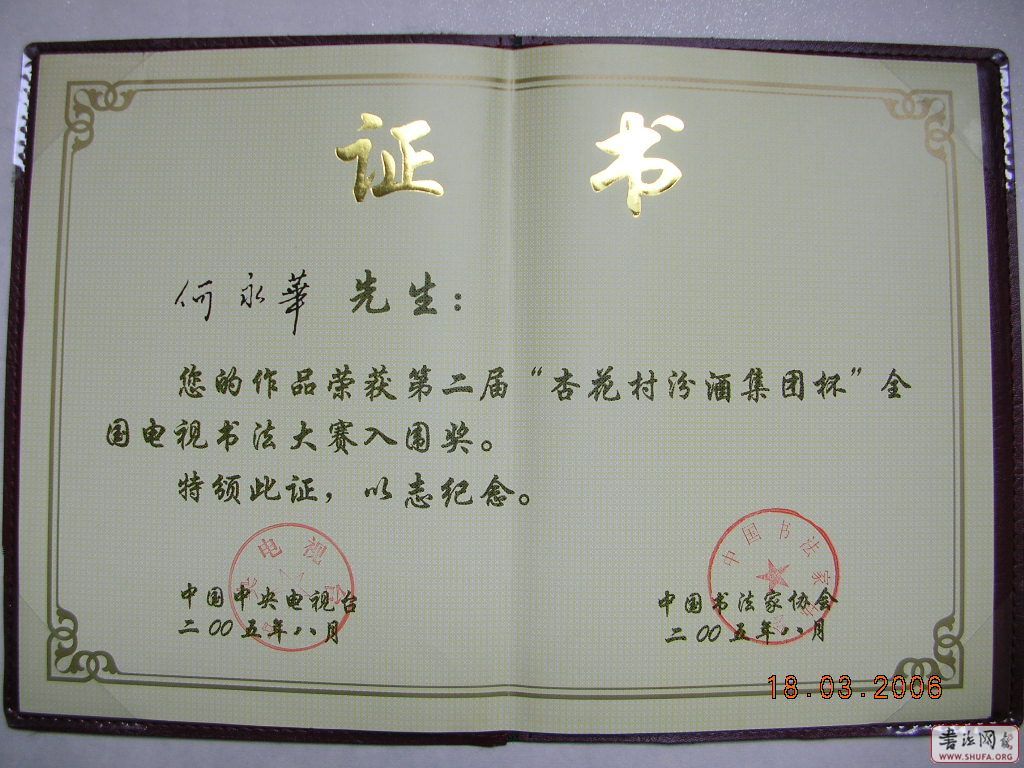 证 书
何永華 先生：
您的作品荣获第二届“杏花村汾酒集团杯”全
国电视书法大赛入围奖。
特颁此证，以志纪念。
电视
中国中央电视台
二00五年八月
中国书法家
中国书法家协会
二00五年八月
18.03.2006
書法网
WWW.SHUFA.ORG